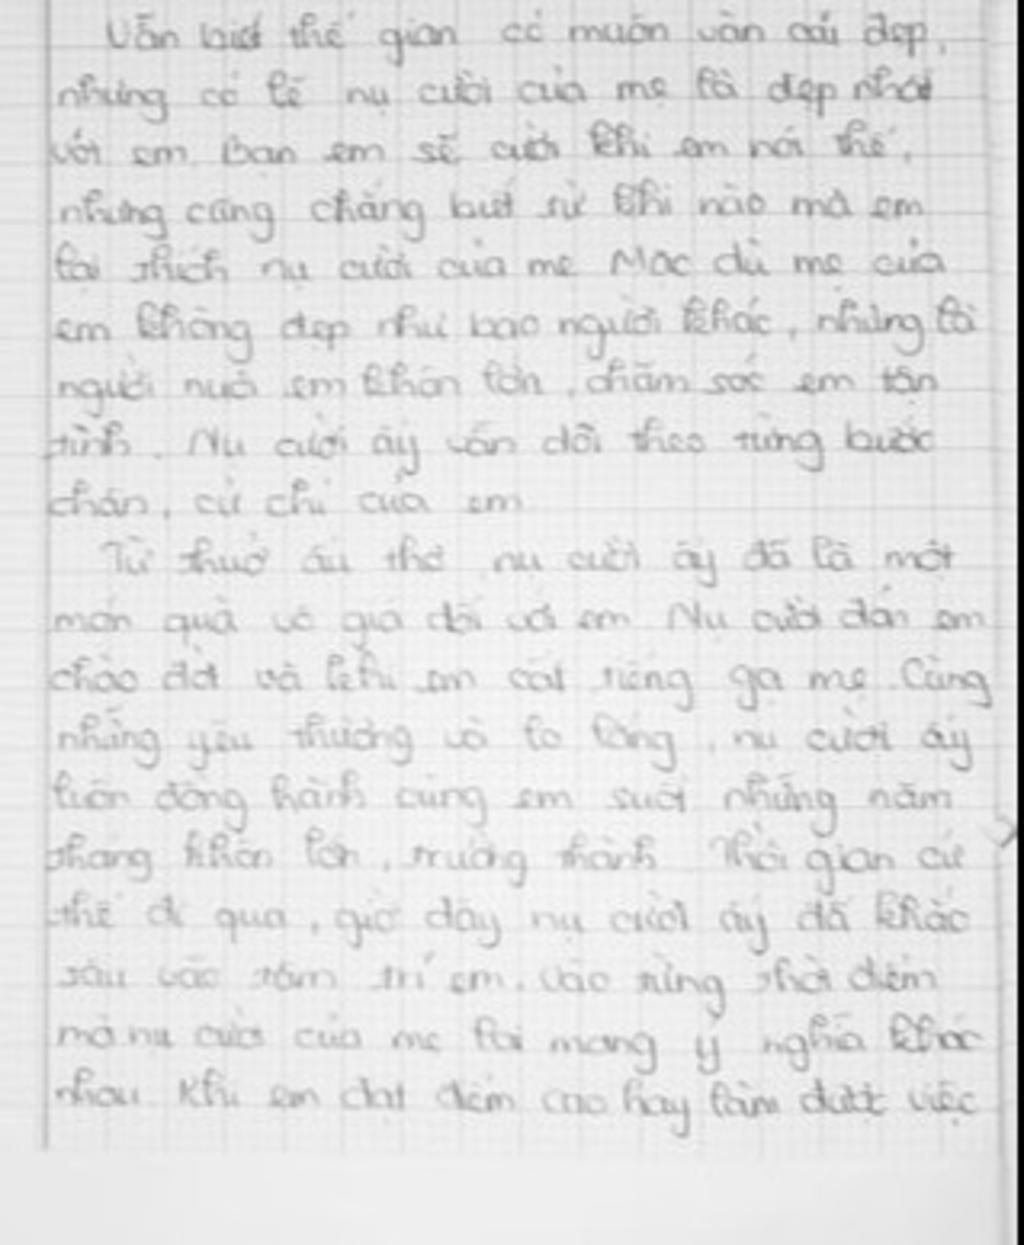 Vẫn biết thế gian có muôn vàn cái đẹp,
nhưng có lẽ nụ cười của mẹ là đẹp nhất
với em. Bạn em sẽ cười khi em nói thế,
nhưng cũng chẳng biết từ khi nào mà em
lại thích nụ cười của mẹ. Mặc dù mẹ của
em không đẹp như bao người khác, nhưng là
người nuôi em khôn lớn, chăm sóc em tận
tình. Nụ cười ấy vẫn dõi theo từng bước
chân, cử chỉ của em
Từ thuở ấu thơ nụ cười ấy đã là một
món quà vô giá đối với em. Nụ cười đón em
chào đời và khi em cất tiếng gọi mẹ. Cùng
những yêu thương và lo lắng, nụ cười ấy
luôn đồng hành cùng em suốt những năm
tháng khôn lớn, trưởng thành. Thời gian cứ
thế đi qua, giờ đây nụ cười ấy đã khắc
sâu vào tâm trí em. Vào từng thời điểm
mà nụ cười của mẹ lại mang ý nghĩa khác
nhau. Khi em đạt điểm cao hay làm được việc